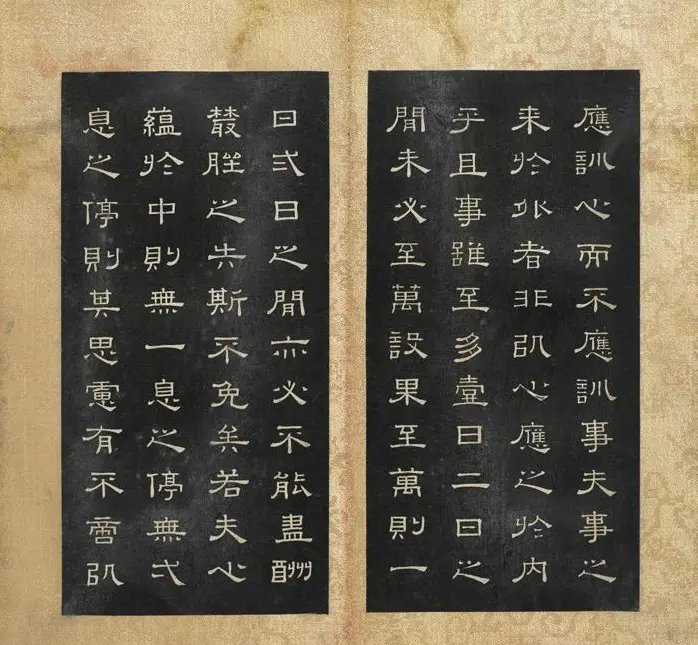 應訓心而不應訓事夫事之
来於外者非所心應之於内
乎且事雖至多壹日二日之
間未必至萬設果至萬則一
日弍日之間亦必不能盡酬
叢脞之失斯不免矣若夫心
蘊於中則無一息之停無弌
息之停則其思慮有不啻所